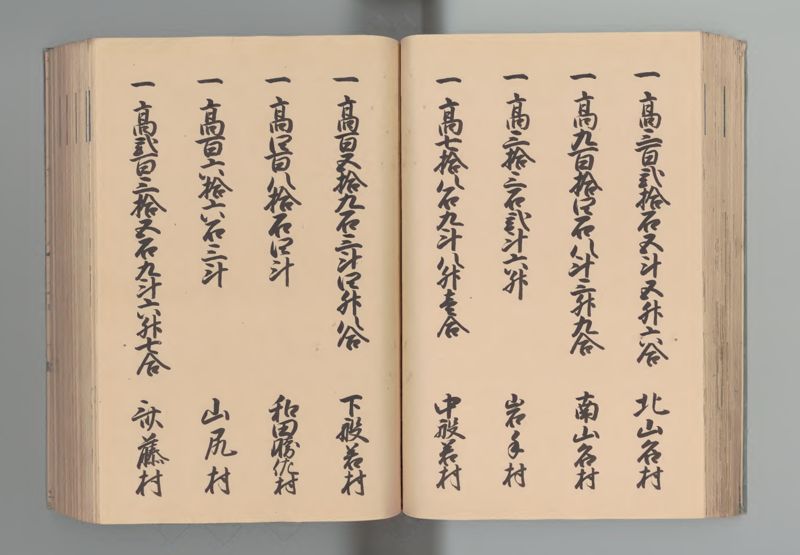 一 高三百弐拾石五斗五升六合 北山名村
一 高九百拾四石八斗三升九合 南山名村
一 高三拾三石弐斗六升 岩手村
一 高七拾八石九斗八升壱合 中般若村
一 高百五拾九石三斗四升八合 下般若村
一 高四百八拾石四斗 和田勝佐村
一 高百六拾六石三斗 山尻村
一 高弐百三拾五石九斗六升七合 斎藤村